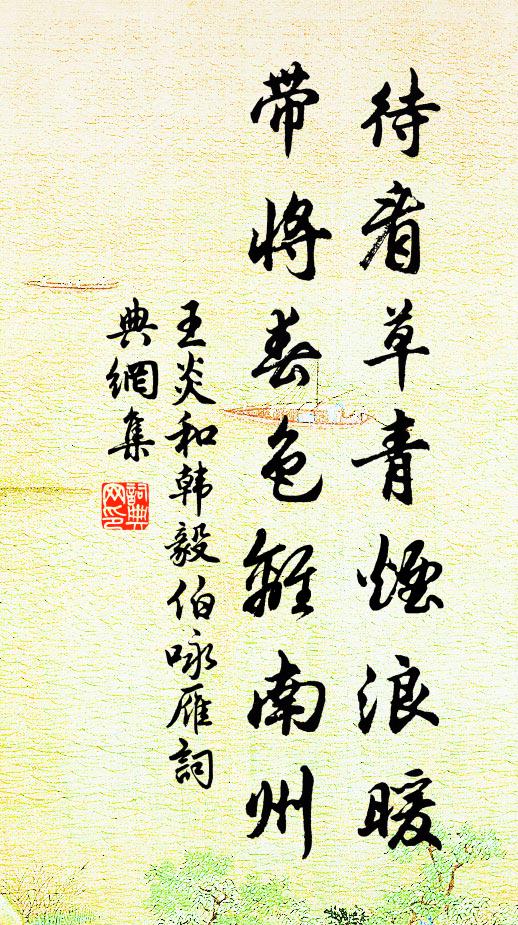 待看草青煙浪暖
帶將春色離南州
王炎和韩毅伯咏雁詞
典網集
詞典网印